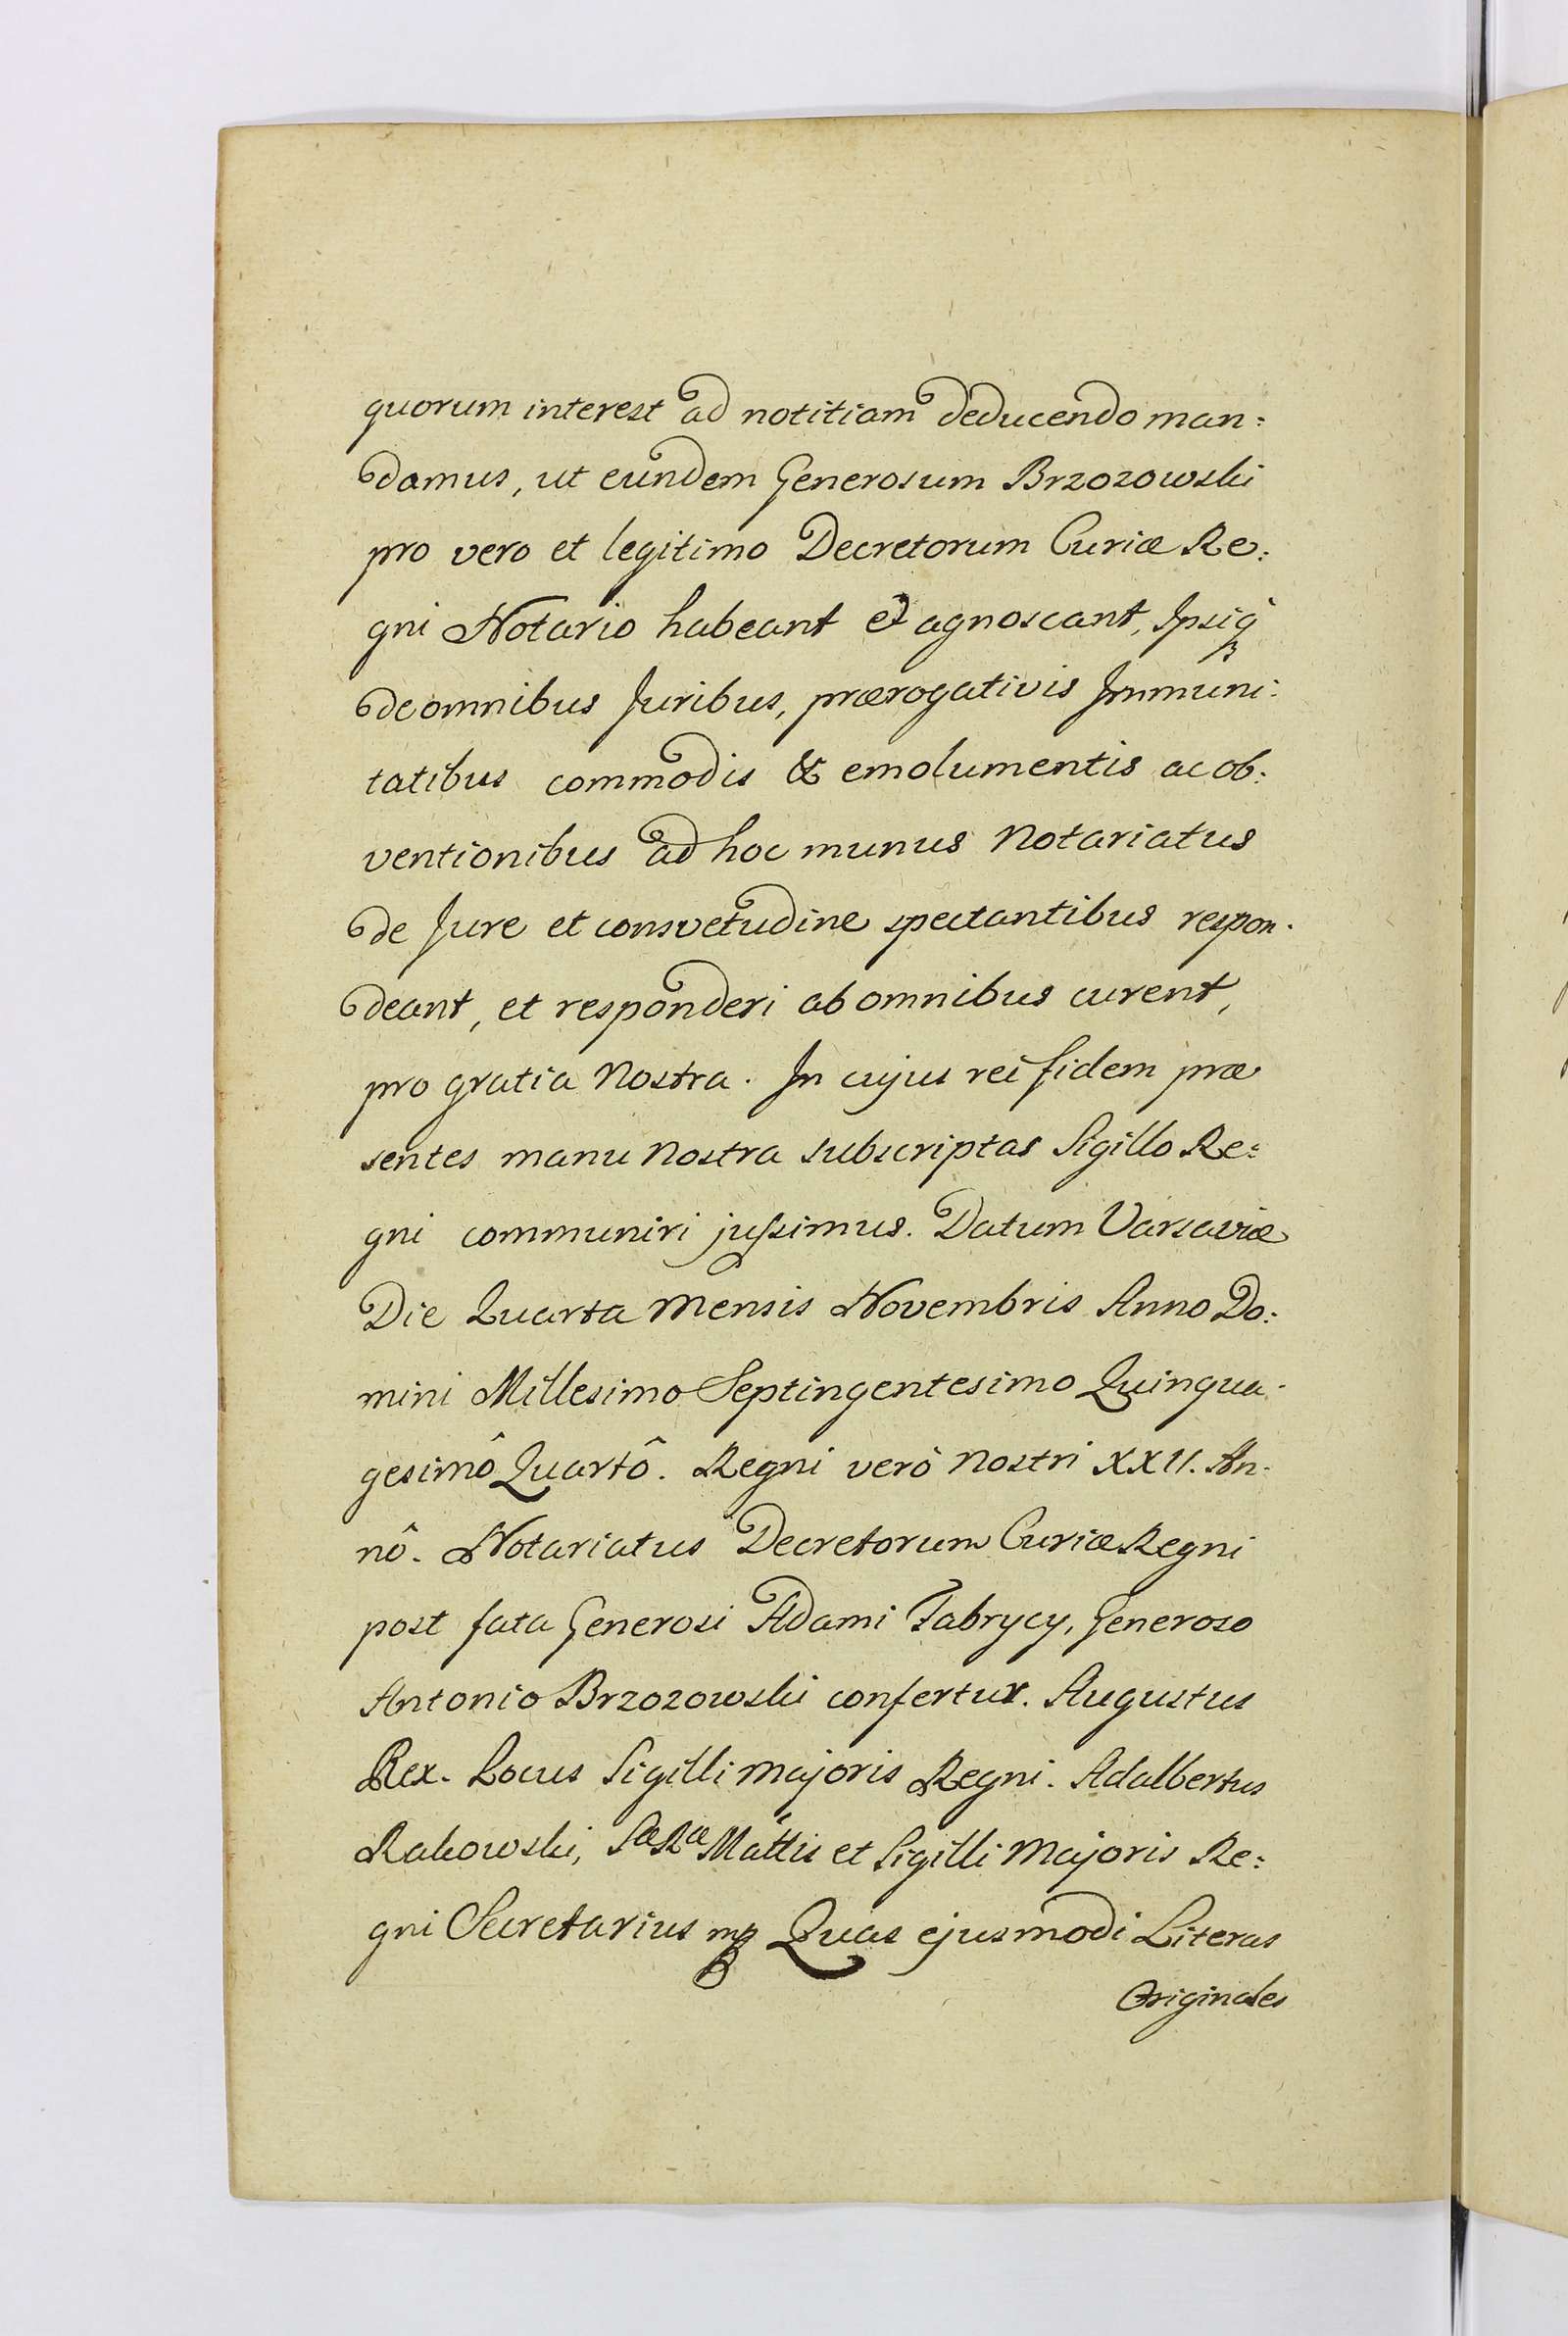 quorum interest ad notitiam deducendo man:
damus, ut eundem Generosum Brzozowski
pro vero et legitimo Decretorum Curiæ Re:
gni Notario habeant et agnoscant, Ipsiq
de omnibus Juribus, prærogativis Immuni:
tatibus commodis & emolumentis ac ob:
ventionibus ad hoc munus Notariatus
de Jure et consvetudine spectantibus respon.
deant, et responderi ab omnibus curent,
pro gratia Nostra. In cujus rei fidem præ
sentes manu Nostra subscriptas Sigillo Re:
gni communiri jussimus. Datum Varsaviæ
Die Quarta Mensis Novembris Anno Do:
mini Millesimo Septingentesimo Quinqua.
gesimô Quartô. Regni verò Nostri XXII. An.
nô. Notariatus Decretorum Curiæ Regni
post fata Generosi Adami Fabrycy, Generoso
Antonio Brzozowski confertur. Augustus
Rex. Locus Sigilli Majoris Regni. Adalbertus
Rakowski, Sæ Ræ Mattis et Sigilli Majoris Re:
gni Secretarius mp Quas ejusmodi Literas
Originales